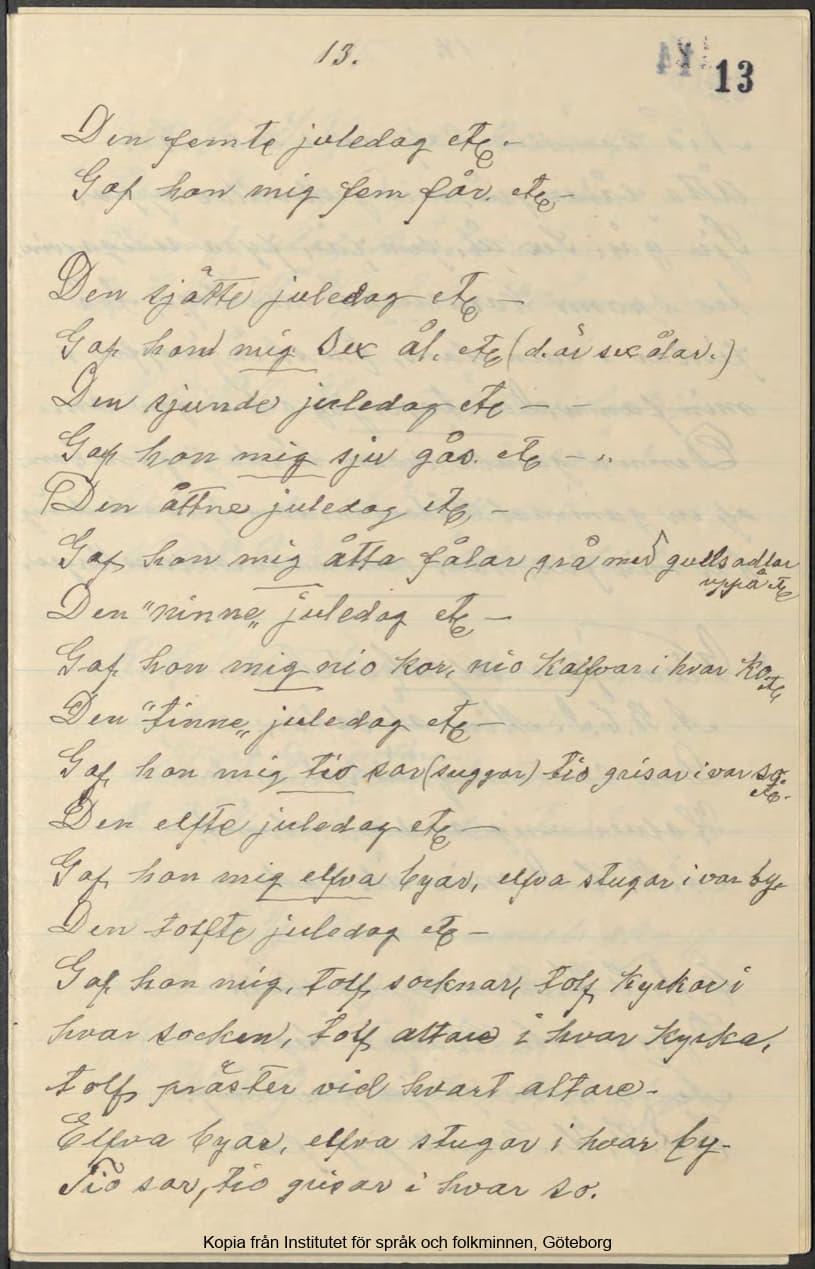 13.
13
Den femte juledag etc –
Gaf han mig fem får. etc –
Den sjätte juledag etc –
Gaf hon mig sex ål. etc (d. är sex ålar.)
Den sjunde juledag etc – –
Gaf hon mig sju gås. etc – "
Den åttne juledag etc –
Gaf hon mig åtta fålar grå med gullsadlar
uppå etc
Den "ninne„ juledag etc –
Gaf hon mig nio kor, nio kalfvar i hvar ko
etc
Den "tinne„ juledag etc –
Gaf hon mig tio sor (suggor) tio grisar i var so.
etc.
Den elfte juledag etc –
Gaf han mig elfva byar, elfva stugor i var by.
Den tolfte juledag etc –
Gaf han mig, tolf socknar, tolf kyrkor i
hvar socken, tolf altare i hvar kyrka,
tolf präster vid hvart altare.
Elfva byar, elfva stugor i hvar by.
Tio sor, tio grisar i hvar so.
Kopia från Institutet för språk och folkminnen, Göteborg